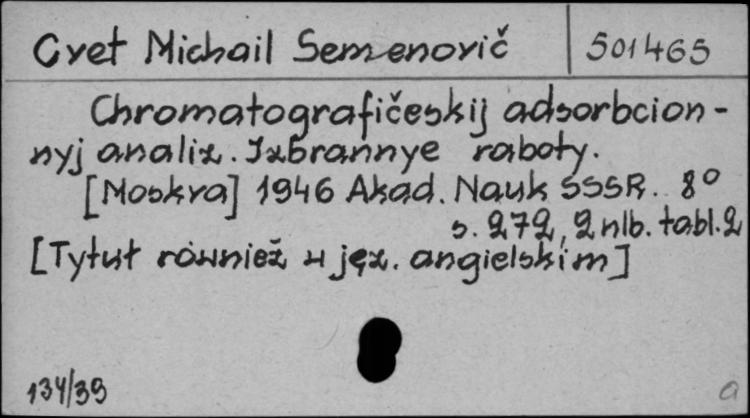 Cvet Michail Semenovič
501465
Chromatografičeskij adsorbcion-
nyj analiz. Izbrannye raboty.
[Moskva] 1946 Akad. Nauk SSSR. 8º
s. 272, 2 nlb. tabl. 2
[Tytuł również w jęz. angielskim]
134/39
a